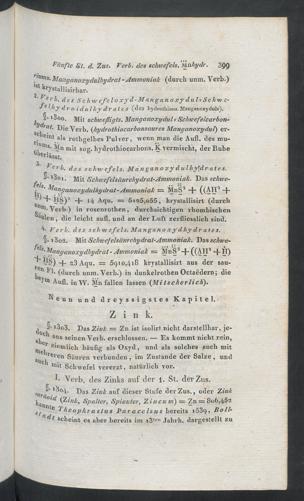 Fünfte St. d. Zus. Verb. des schwefels. Manhydr. 399
Manganoxydulhydrat-Ammoniak (durch unm. Verb.)
ist krystallisirbar.
2. Verb. des Schwefeloxyd-Manganoxydul-Schwe-
felhydroidulhydrates (des hydrothions. Manganoxyduls).
§. 1300. Mit schwefligts. Manganoxydul-Schwefelcarbon-
hydrat. Die Verb. (hydrothiocarbonsaures Manganoxydul) er-
scheint als rothgelbes Pulver, wenn man die Aufl. des mu-
riums. Mn mit sog. hydrothiocarbons. K vermischt, der Ruhe
überlässt.
3. Verb. des schwefels. Manganoxydulhydrates.
§. 1301. Mit Schwefelsäurehydrat-Ammoniak. Das schwe-
fels. Manganoxydulhydrat-Ammoniak =
+ 14 Aqu. = krystallisirt (durch
unm. Verb.) in rosenrothen, durchsichtigen rhombischen
Säulen, die leicht aufl. und an der Luft zerfliesslich sind.
4. Verb. des schwefels. Manganoxydhydrates.
§. 1302. Mit Schwefelsäurehydrat-Ammoniak. Das schwe-
fels. Manganoxydhydrat-Ammoniak =
+ 23 Aqu. = 5910,418 krystallisirt aus der
Fl. (durch unm. Verb.) in dunkelrothen Octaëdern; die
beym Aufl. in W. Mn fallen lassen (Mitscherlich).
Neun und dreyssigstes Kapitel.
Zink.
§. 1303. Das Zink = Zn ist isolirt nicht darstellbar, je-
doch aus seinen Verb. erschlossen. — Es kommt nicht rein,
aber ziemlich häufig als Oxyd, und als solches auch mit
mehreren Säuren verbunden, im Zustande der Salze, und
auch mit Schwefel vererzt, natürlich vor.
I. Verb. des Zinks auf der 1. St. der Zus.
§. 1304. Das Zink auf dieser Stufe der Zus., oder Zink
(Zink, Spalter, Spiauter, Zincum) = Zn = 806,452
kannte Theophrastus Paracelsus bereits 1539, Boll-
stadt scheint es aber bereits im 13ten Jahrh. dargestellt zu